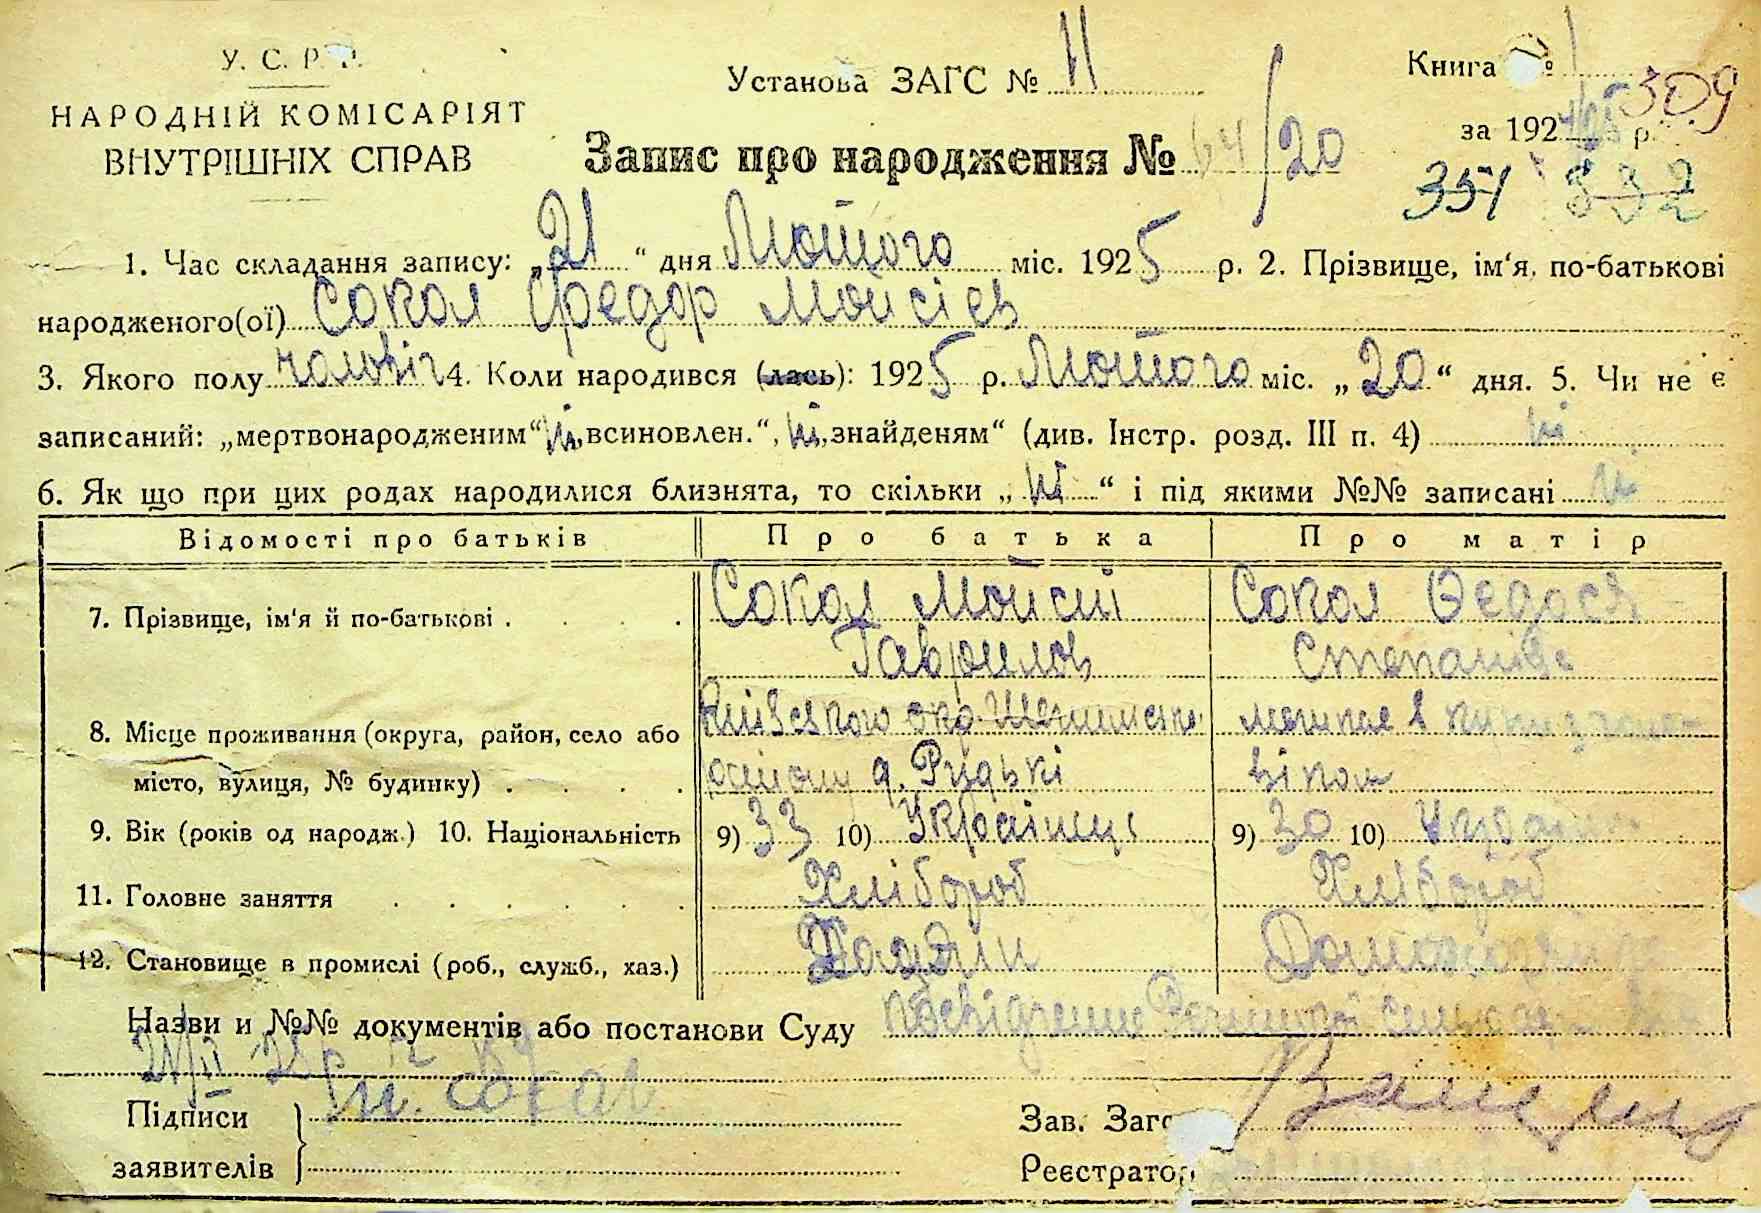 У. С. Р. Р.
НАРОДНІЙ КОМІСАРІЯТ
ВНУТРІШНІХ СПРАВ
Установа ЗАГС № 11
Запис про народження № 64/20
Книга № 1
309
за 1924/25 р.
351 832
1. Час складання запису: „21“ дня Лютого міс. 1925 р. 2. Прізвище, ім‘я, по-батькові
народженого(ої) Сокол Федор Мойсієв
3. Якого полу чоловіч 4. Коли народився (лась): 1925 р. Лютого міс. „20“ дня. 5. Чи не є
записаний: „мертвонародженим“ ні „всиновлен.“, ні „знайденям“ (див. Інстр. розд. III п. 4) ні
6. Як що при цих родах народилися близнята, то скільки „ні“ і під якими №№ записані ні
Відомості про батьків Про батька Про матір
7. Прізвище, ім‘я й по-батькові . . . . Сокол Мойсій Сокол Ѳедося
Гаврилов Степанівна
8. Місце проживання (округа, район, село або Київської окр. мешкає в
місто, вулиця, № будинку) . . . . району д. Рудькі віком
9. Вік (років од народж.) 10. Національність 9) 33 10) Українець 9) 30 10) Україн
11. Головне заняття . . . . . . Хлібороб Хлібороб
12. Становище в промислі (роб., служб., хаз.) Хазяін Домохозяйка
Назви и №№ документів або постанови Суду посвідчення
21/II 25р № 87
Підписи М. Сокол
заявителів
Зав. Загс
Реєстратор